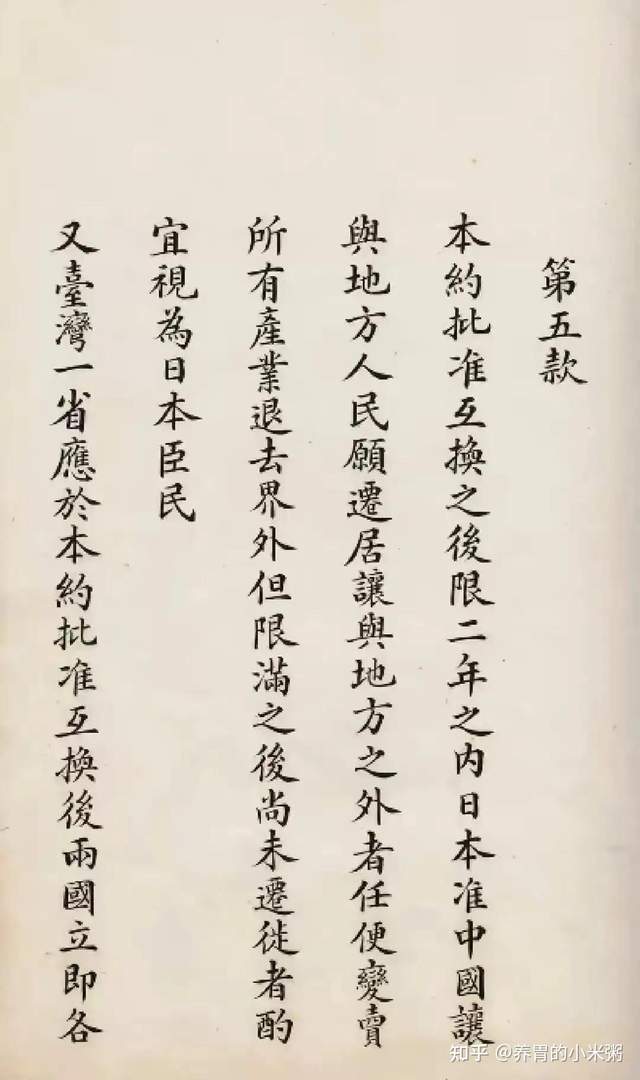 第五款
本約批准互換之後限二年之內日本准中國讓
與地方人民願遷居讓與地方之外者任便變賣
所有產業退去界外但限滿之後尚未遷徙者酌
宜視為日本臣民
又臺灣一省應於本約批准互換後兩國立即各
知乎 @养胃的小米粥